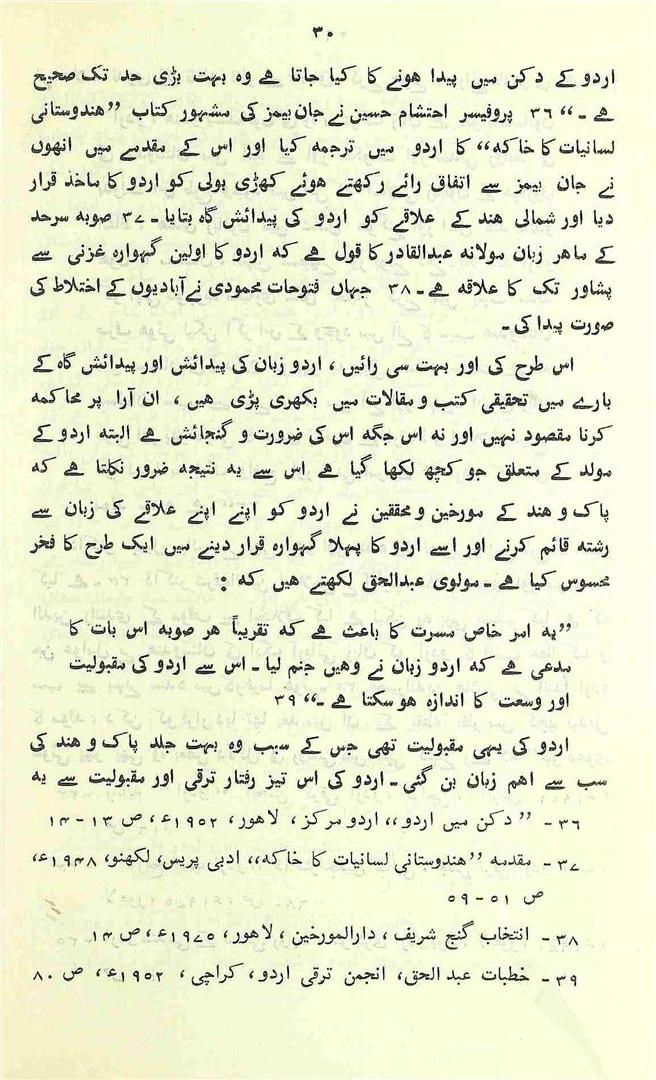 ۳۰
اردو کے دکن میں پیدا ہونے کا کیا جاتا ہے وہ بہت بڑی حد تک صحیح
ہے ۔ ،، ۳۶ پروفیسر احتشام حسین نے جان بیمز کی مشہور کتاب ’’ہندوستانی
لسانیات کا خاکہ،، کا اردو میں ترجمہ کیا اور اس کے مقدمے میں انھوں
نے جان بیمز سے اتفاق رائے رکھتے ہوئے کھڑی بولی کو اردو کا ماخذ قرار
دیا اور شمالی ہند کے علاقے کو اردو کی پیدائش گاہ بتایا ۔ ۳۷ صوبہ سرحد
کے ماہر زبان مولانہ عبدالقادر کا قول ہے کہ اردو کا اولین گہوارہ غزنی سے
پشاور تک کا علاقہ ہے ۔ ۳۸ جہاں فتوحات محمودی نے آبادیوں کے اختلاط کی
صورت پیدا کی ۔
اس طرح کی اور بہت سی رائیں ، اردو زبان کی پیدائش اور پیدائش گاہ کے
بارے میں تحقیقی کتب و مقالات میں بکھری پڑی ہیں ، ان آرا پر محاکمہ
کرنا مقصود نہیں اور نہ اس جگہ اس کی ضرورت و گنجائش ہے البتہ اردو کے
مولد کے متعلق جو کچھ لکھا گیا ہے اس سے یہ نتیجہ ضرور نکلتا ہے کہ
پاک و ہند کے مورخین و محققین نے اردو کو اپنے اپنے علاقے کی زبان سے
رشتہ قائم کرنے اور اسے اردو کا پہلا گہوارہ قرار دینے میں ایک طرح کا فخر
محسوس کیا ہے ۔ مولوی عبدالحق لکھتے ہیں کہ :
’’یہ امر خاص مسرت کا باعث ہے کہ تقریباً ہر صوبہ اس بات کا
مدعی ہے کہ اردو زبان نے وہیں جنم لیا ۔ اس سے اردو کی مقبولیت
اور وسعت کا اندازہ ہو سکتا ہے ۔،، ۳۹
اردو کی یہی مقبولیت تھی جس کے سبب وہ بہت جلد پاک و ہند کی
سب سے اہم زبان بن گئی ۔ اردو کی اس تیز رفتار ترقی اور مقبولیت سے یہ
۳۶ - ’’ دکن میں اردو ،، اردو مرکز ، لاہور ، ۱۹۵۲ء ، ص ۱۳ - ۱۴
۳۷ - مقدمہ ’’ہندوستانی لسانیات کا خاکہ،، ادبی پریس، لکھنو، ۱۹۴۸ء،
ص ۵۱ - ۵۹
۳۸ - انتخاب گنج شریف ، دارالمورخین ، لاہور ، ۱۹۷۵ء ، ص ۱۴
۳۹ - خطبات عبدالحق، انجمن ترقی اردو، کراچی، ۱۹۵۲ء، ص ۸۰